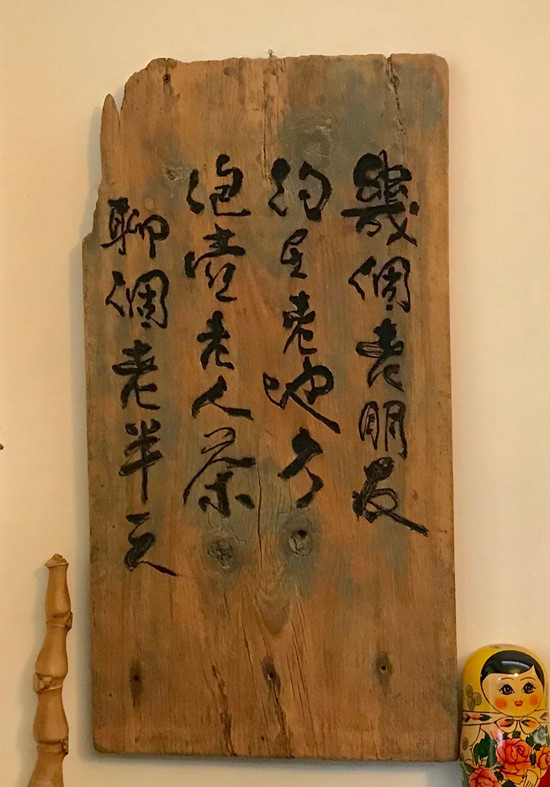 幾個老朋友
約在老地方
泡壺老人茶
聊個老半天